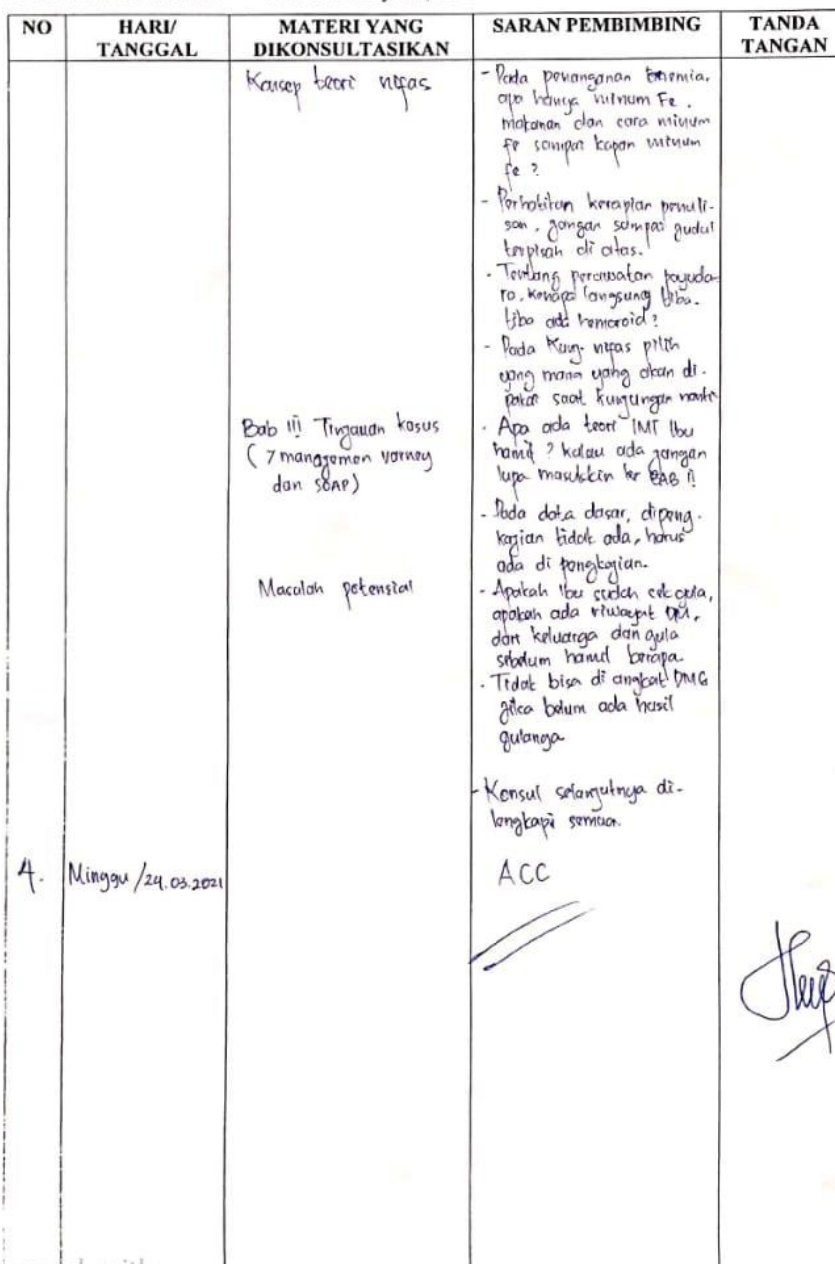 NO
HARI/
TANGGAL
MATERI YANG
DIKONSULTASIKAN
SARAN PEMBIMBING
TANDA
TANGAN
Konsep teori nifas
- Pada penanganan anemia,
apa hanya minum Fe.
makanan dan cara minum
Fe sampai kapan minum
Fe ?
- Perhatikan kerapian penuli-
san, jangan sampai judul
terpisah di atas.
- Tentang perawatan payuda-
ra, kenapa langsung tiba-
tiba ada hemoroid ?
- Pada Kunj. nifas pilih
yang mana yang akan di-
pakai saat kunjungan nanti
Bab III Tinjauan kasus
(7 manajemen varney
dan SOAP)
- Apa ada teori IMT Ibu
hamil ? kalau ada jangan
lupa masukkin ke BAB II
- Pada data dasar, dipeng-
kajian tidak ada, harus
ada di pengkajian.
Masalah potensial
- Apakah Ibu sudah cek gula,
apakah ada riwayat DM,
dari keluarga dan gula
sebelum hamil berapa.
- Tidak bisa di angkat DMG
jika belum ada hasil
gulanya
- Konsul selanjutnya di-
lengkapi semua.
4.
Minggu /24.03.2021
ACC